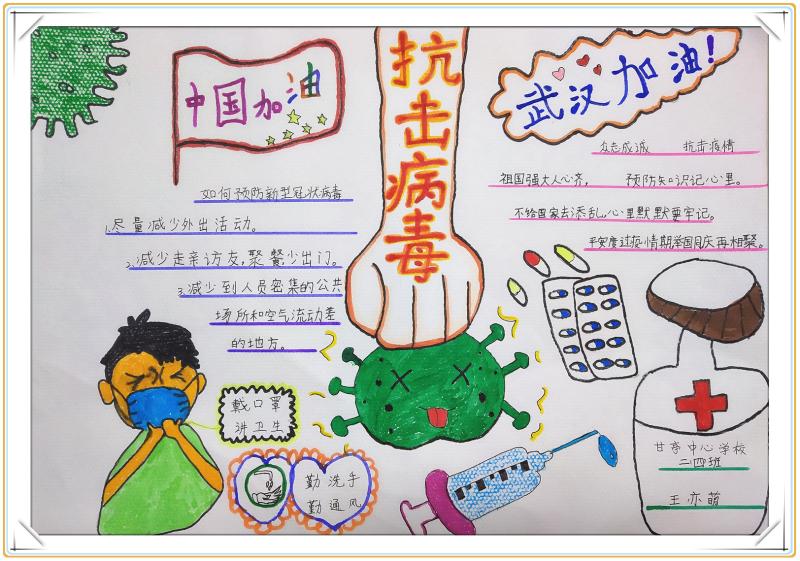 中国加油
抗击病毒
武汉加油!
众志成诚 抗击疫情
祖国强大人心齐, 预防知识记心里。
不给国家去添乱,心里默默要牢记。
平安度过疫情期举国同庆再相聚。
如何预防新型冠状病毒
1.尽量减少外出活动。
2.减少走亲访友,聚餐少出门。
3.减少到人员密集的公共
场所和空气流动差
的地方。
戴口罩
讲卫生
勤洗手
勤通风
甘亭中心学校
二四班
王亦萌